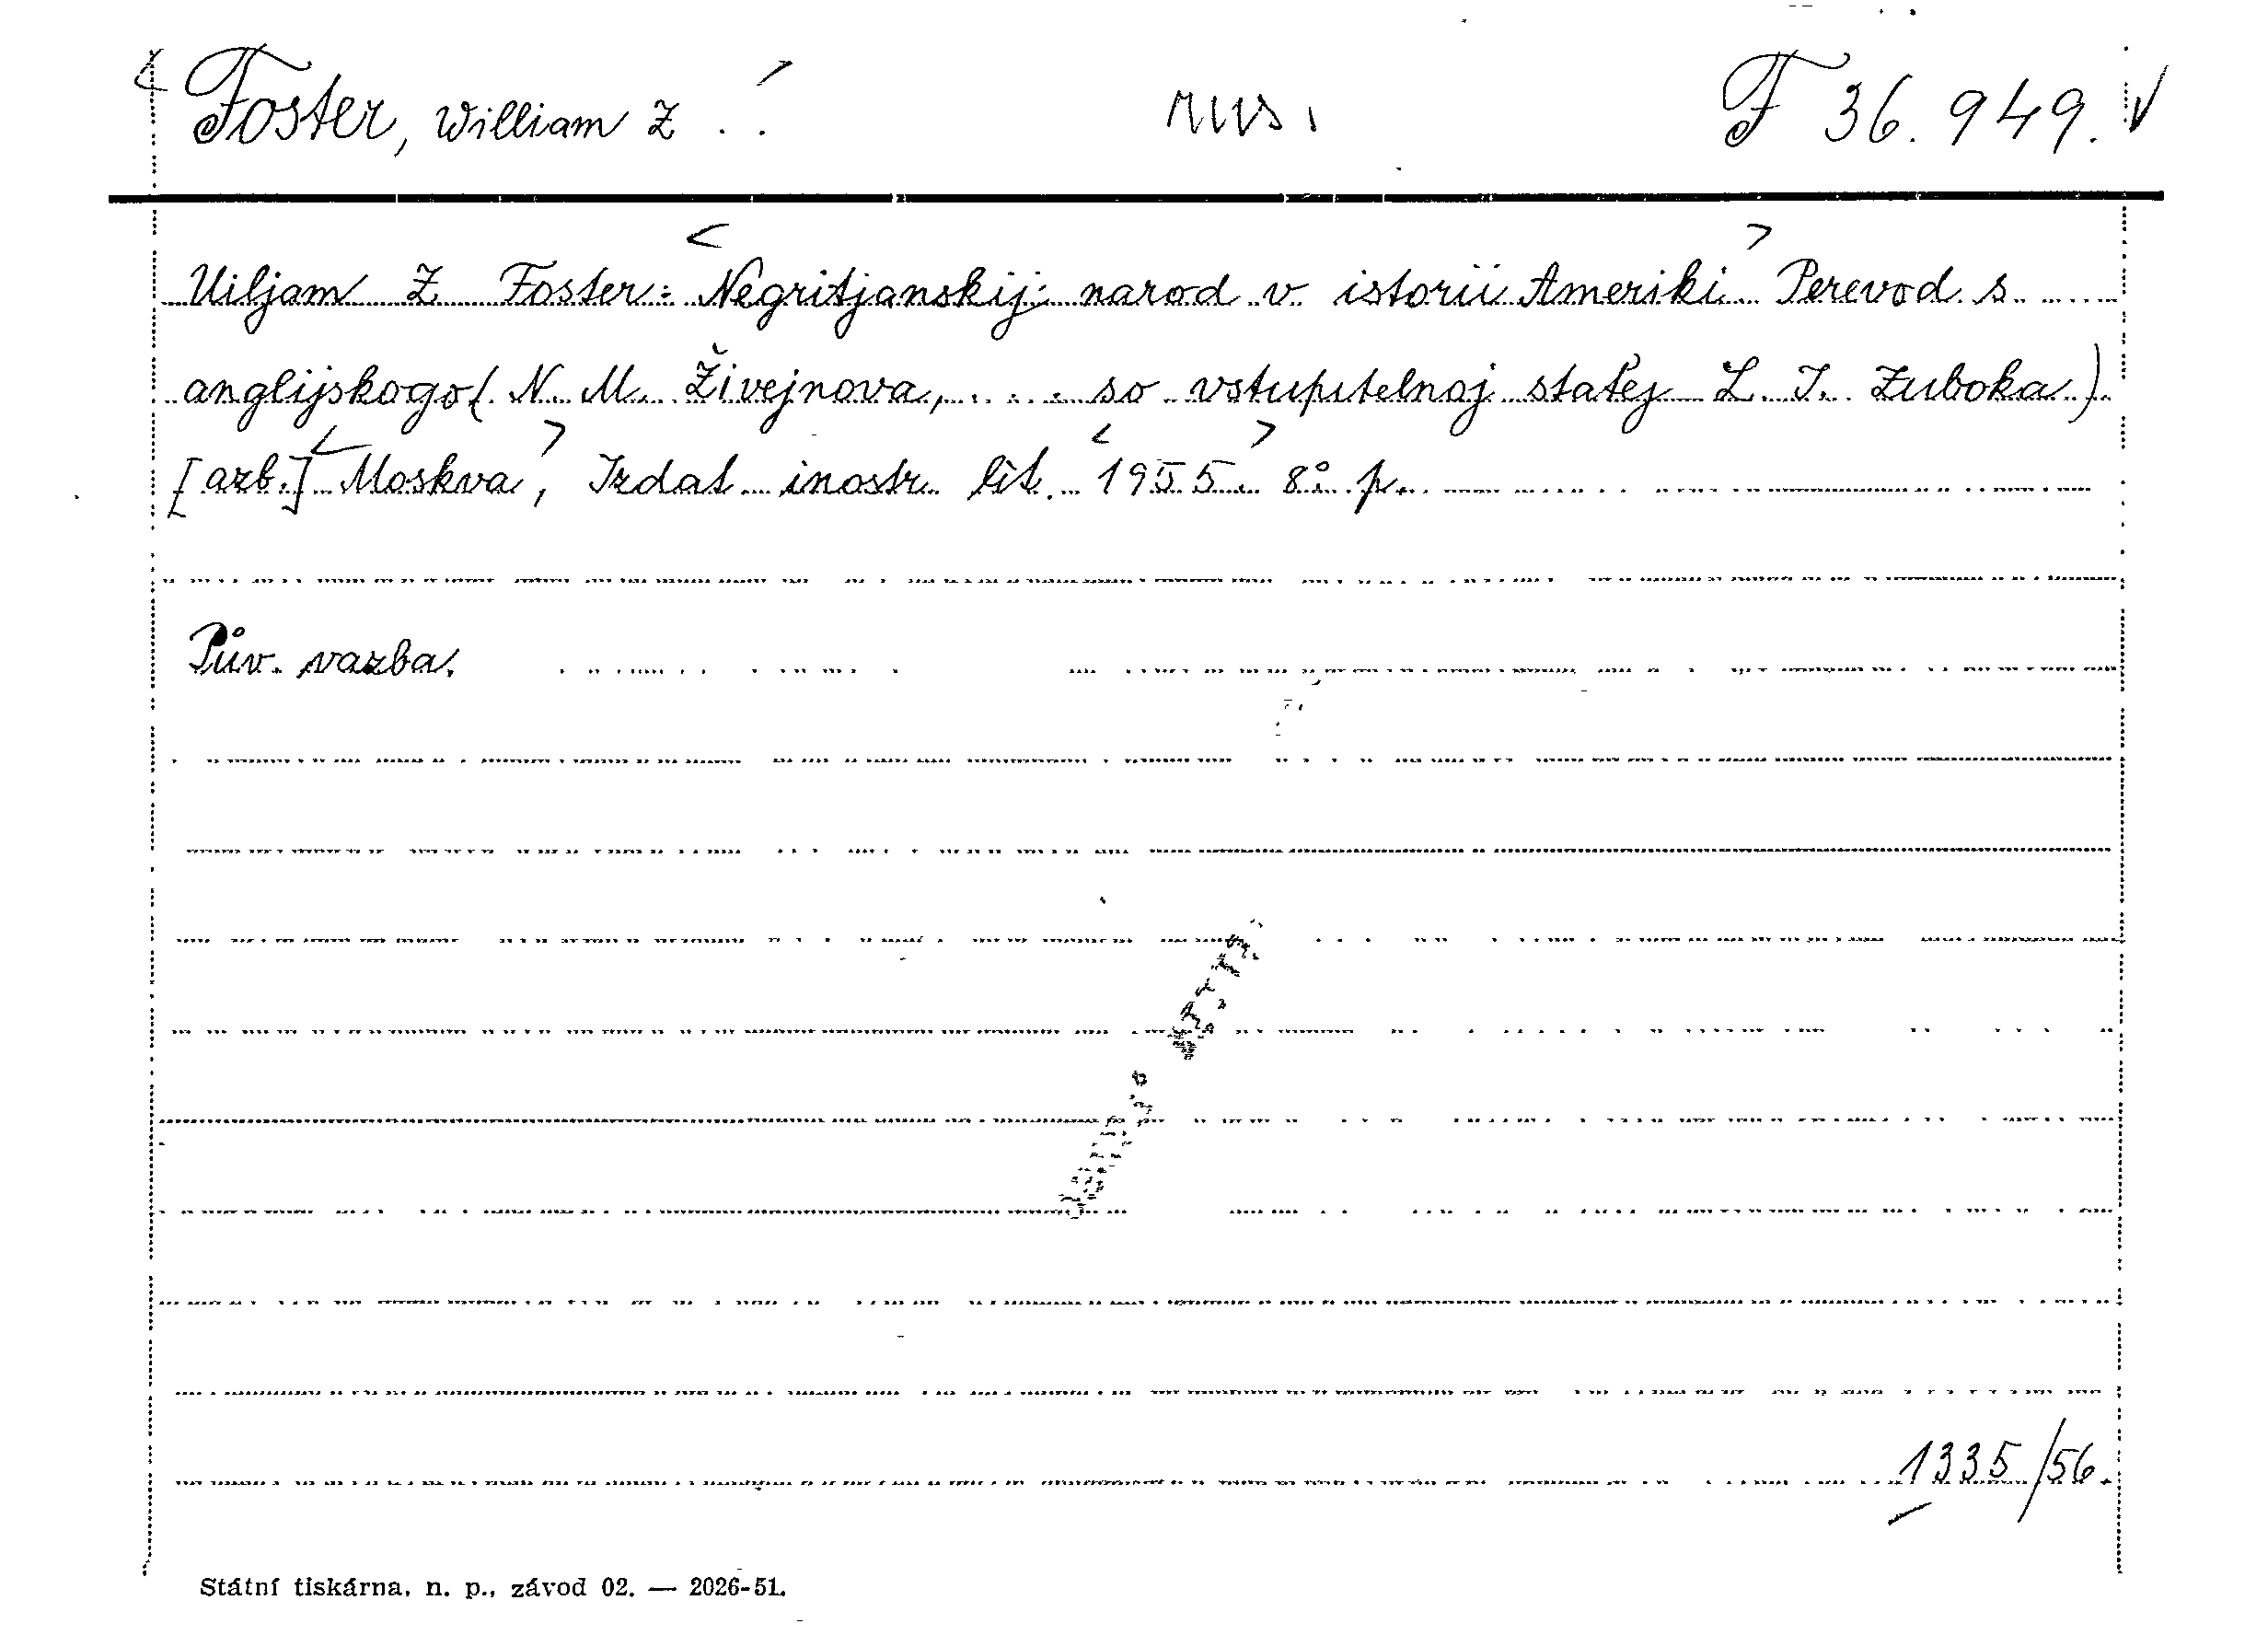 Foster, William Z. rus. F 36.949.
Uiljam Z. Foster: <Negritjanskij narod v istorii Ameriki> Perevod s
anglijskogo (N. M. Živejnova, ... so vstupitelnoj staťej L. I. Zuboka)
[azb.] <Moskva>, Izdat. inostr. lit. <1955.> 8° p.
Pův. vazba.
1335/56.
Státní tiskárna, n. p., závod 02. — 2026-51.